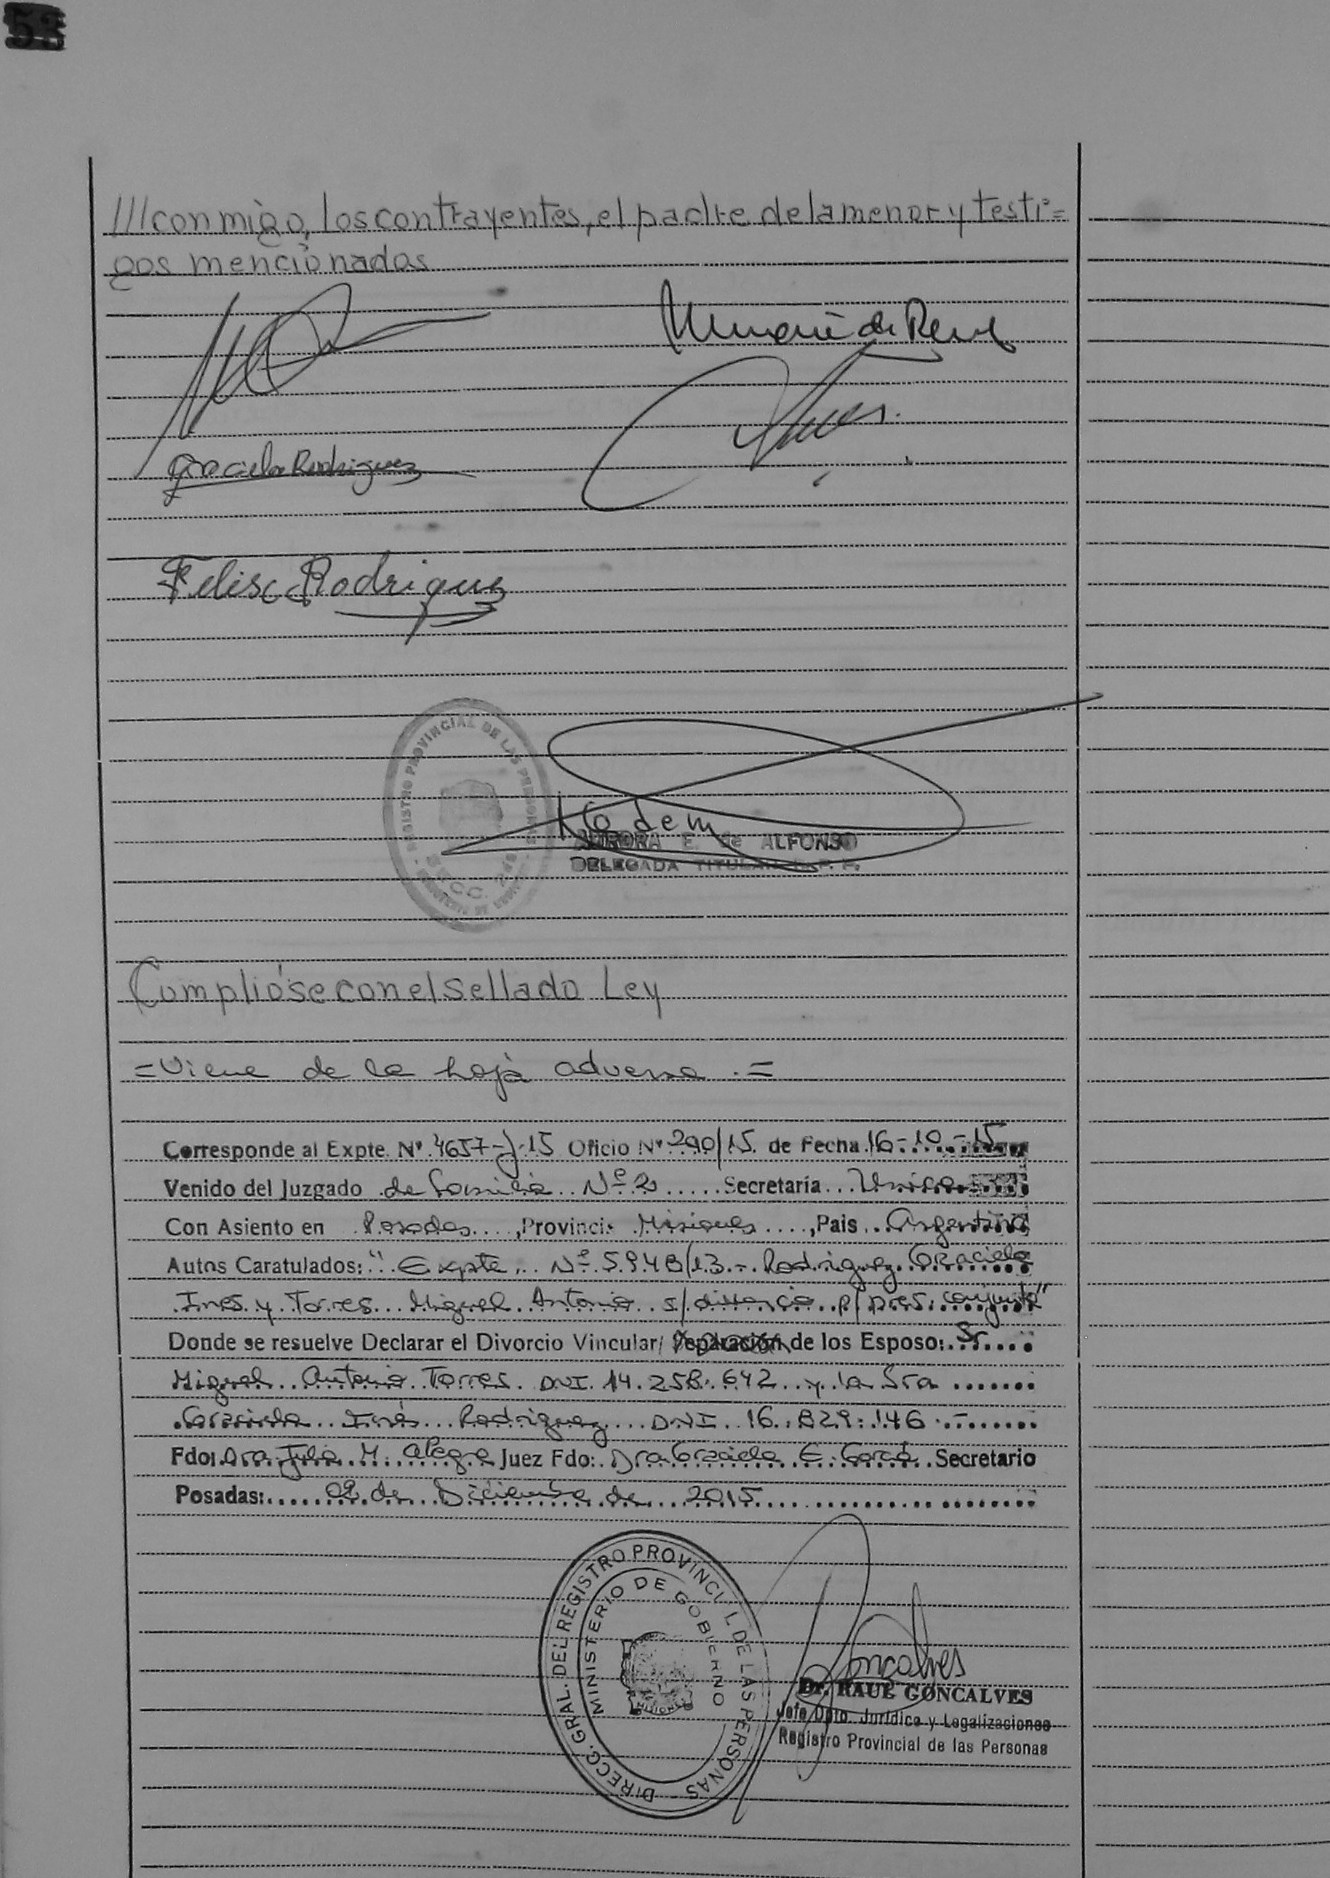 53
///conmigo, los contrayentes, el padre de la menor y testi=
gos mencionados
Graciela Rodriguez
Felisa Rodriguez
REGISTRO PROVINCIAL DE LAS PERSONAS
SECC.
AURORA E. de ALFONSO
DELEGADA TITULAR
Cumplióse con el sellado Ley
=Viene de la hoja adversa.=
Corresponde al Expte. Nº 4657-J-15 Oficio Nº 290/15 de Fecha 16-10-15
Venido del Juzgado de Familia Nº 2 Secretaría Unica
Con Asiento en Posadas, Provincia Misiones, Pais Argentina
Autos Caratulados: "Expte. Nº 5948/13 - Rodriguez Graciela
Ines y Torres Miguel Antonio s/divorcio p/pres. conjunta"
Donde se resuelve Declarar el Divorcio Vincular/ Separación de los Esposo: Sr.
Miguel Antonio Torres DNI. 14.258.642 y la Sra
Graciela Inés Rodriguez DNI 16.829.146.-
Fdo: Dra Julia M. Alegre Juez Fdo: Dra Graciela E. Secretario
Posadas: 02 de Diciembre de 2015
DIRECC. GRAL. DEL REGISTRO PROVINCIAL DE LAS PERSONAS
MINISTERIO DE GOBIERNO
MISIONES
Goncalves
Dr. RAUL GONCALVES
Jefe Dpto. Jurídico y Legalizaciones
Registro Provincial de las Personas